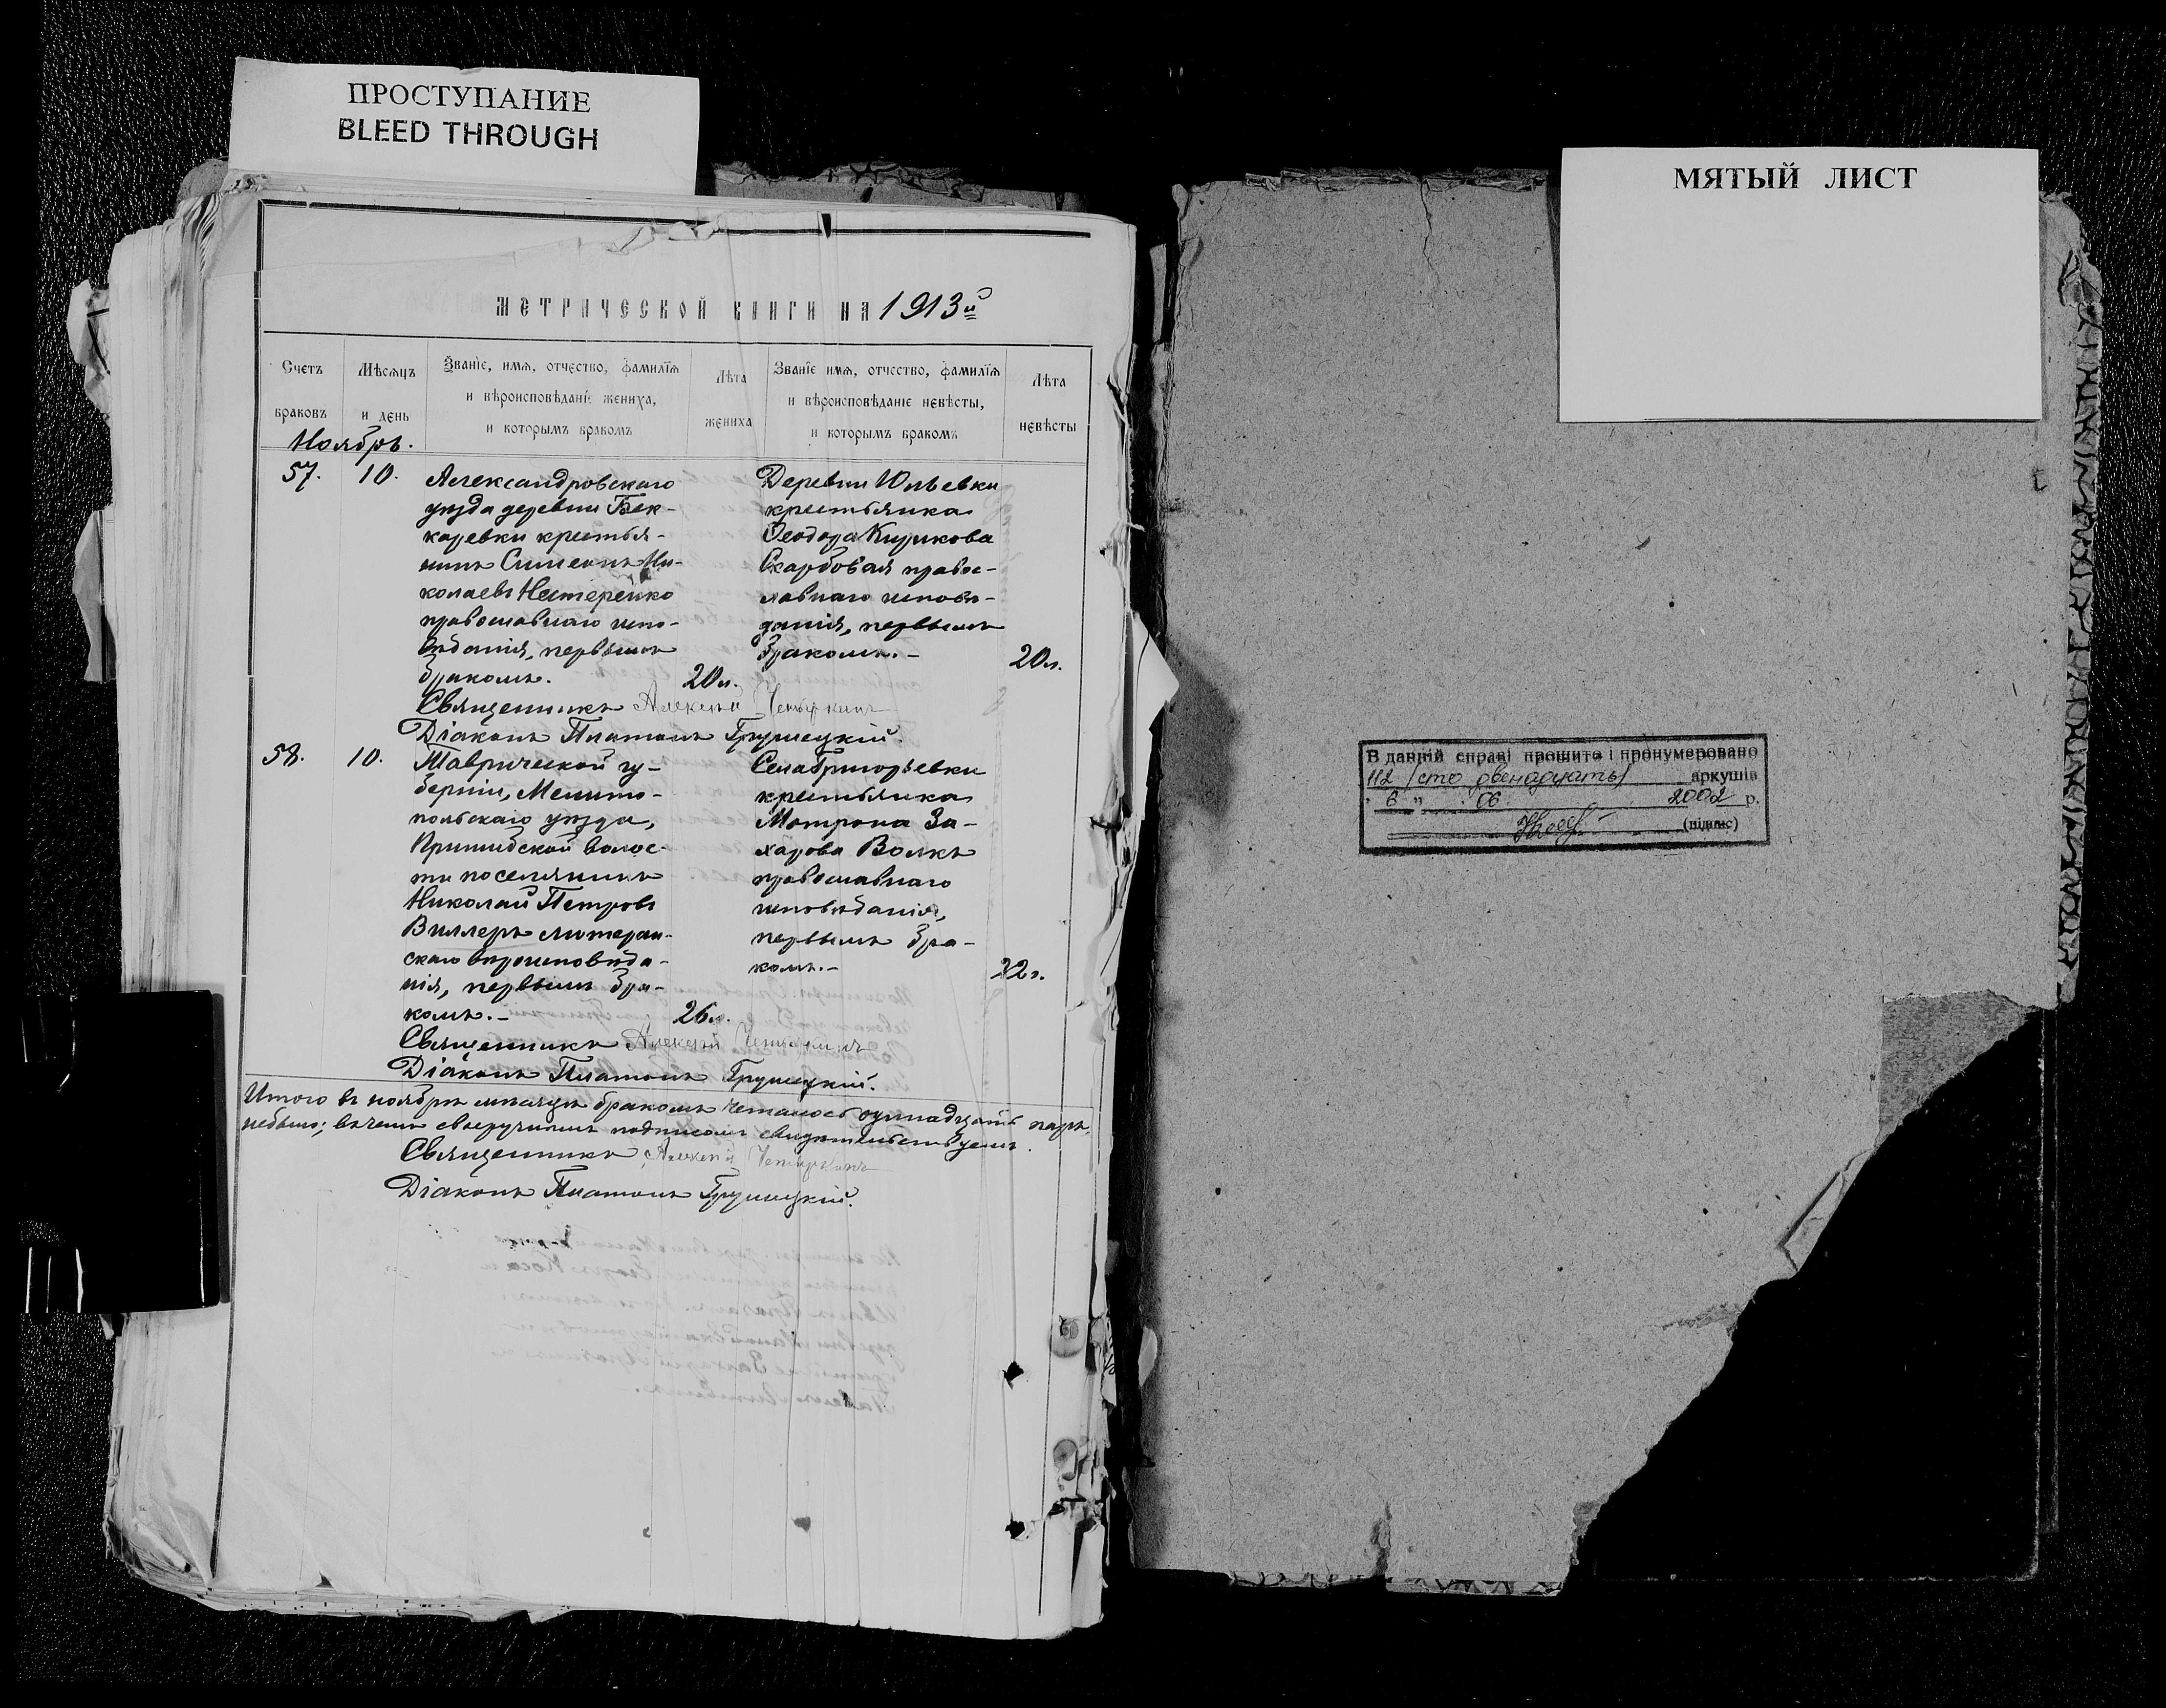 ПРОСТУПАНИЕ
BLEED THROUGH
МЯТЫЙ ЛИСТ
МЕТРИЧЕСКОЙ КНИГИ НА 1913й
Счетъ браковъ
Мѣсяцъ и день
Званіе, имя, отчество, фамилія
и вѣроисповѣданіе жениха,
и которымъ бракомъ
Лѣта жениха
Званіе имя, отчество, фамилія
и вѣроисповѣданіе невѣсты,
и которымъ бракомъ
Лѣта невѣсты
Ноябрь.
57. 10.
Александровскаго
уѣзда деревни Бек-
каревки крестья-
нинъ Симеонъ Ни-
колаевъ Нестеренко
православнаго испо-
вѣданія, первымъ
бракомъ.
20 л.
Деревни Юльевки
крестьянка
Ѳеодора Кирикова
Скарбовая правос-
лавнаго исповѣ-
данія, первымъ
бракомъ.-
20 л.
Священникъ Алексѣй Четыркинъ
Діаконъ Платонъ Грушецкій.
58. 10.
Таврической гу-
берніи, Мелито-
польскаго уѣзда,
Пришибской волос-
ти поселянинъ
Николай Петровъ
Виллеръ лютеран-
скаго вѣроисповѣда-
нія, первымъ бра-
комъ.-
26 л.
Села Григорьевки
крестьянка
Матрона За-
харова Волкъ
православнаго
исповѣданія,
первымъ бра-
комъ.-
22 г.
Священникъ Алексѣй Четыркинъ
Діаконъ Платонъ Грушецкій.
Итого въ ноябрѣ мѣсяцѣ бракомъ четалось одинадцать паръ,
небыло; въ чемъ своеручнымъ подписомъ свидѣтельствуемъ.
Священникъ Алексѣй Четыркинъ
Діаконъ Платонъ Грушецкій.
В данній справі прошито і пронумеровано
112 (сто двенадцать) аркушів
" 6 " 06 2002 р.
(підпис)